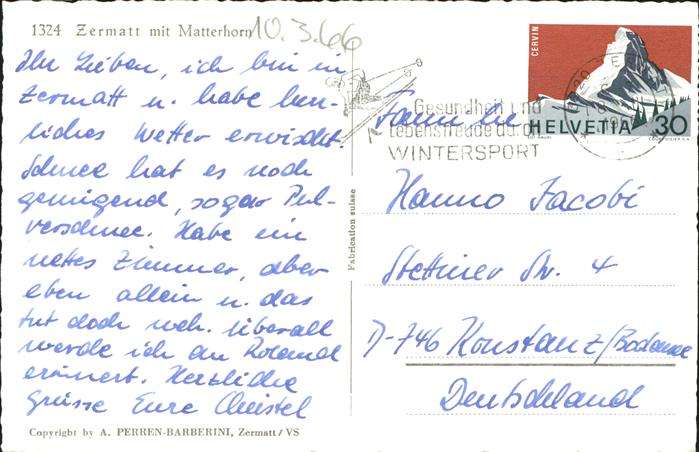 1324 Zermatt mit Matterhorn
10.3.66
Ihr Lieben, ich bin in
Zermatt u. habe herr-
liches Wetter erwischt.
Schnee hat es noch
genügend, sogar Pul-
verschnee. Habe ein
nettes Zimmer, aber
eben allein u. das
tut doch weh. Überall
werde ich an Roland
erinnert. Herzliche
Grüsse Eure Christel
Copyright by A. PERREN-BARBERINI, Zermatt/VS
Fabrication suisse
Gesundheit und
Lebensfreude durch
WINTERSPORT
CERVIN
HELVETIA 30
Familie
Hanno Jacobi
Stettiner Str. 4
D-746 Konstanz/Bodensee
Deutschland